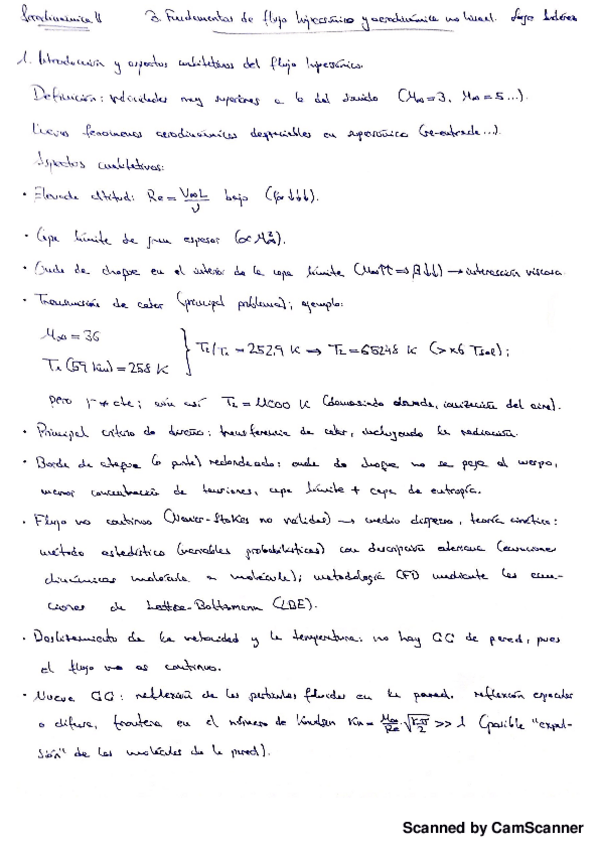 Aerodinámica II 3. Fundamentos de flujo hipersónico y aerodinámica no lineal.
1. Introducción y aspectos cualitativos del flujo hipersónico.
Definición: velocidades muy superiores a la del sonido (M∞=3, M∞=5...).
Nuevos fenómenos aerodinámicos despreciables en supersónico (re-entrada...).
Aspectos cualitativos:
· Elevada altitud: Re = V∞L/ν bajo (ρ∞↓↓↓).
· Capa límite de gran espesor (∝ M∞²).
· Onda de choque en el interior de la capa límite (M∞↑↑ ⇒ β↓↓) → interacción viscosa.
· Transmisión de calor (principal problema); ejemplo:
M∞ = 36
T₁(59 km) = 258 K } T₂/T₁ = 252.9 K → T₂ = 65248 K (> ×6 Tsol);
pero γ ≠ cte; aún así T₂ = 11000 K (demasiado elevada, ionización del aire).
· Principal criterio de diseño: transferencia de calor, incluyendo la radiación.
· Borde de ataque (o punta) redondeado: onda de choque no se pega al cuerpo,
menor concentración de tensiones, capa límite + capa de entropía.
· Flujo no continuo (Navier-Stokes no válidas) → medio disperso, teoría cinética:
método estadístico (variables probabilísticas) con descripción alternativa (ecuaciones
dinámicas molécula a molécula); metodología CFD mediante las ecua-
ciones de Lattice-Boltzmann (LBE).
· Deslizamiento de la velocidad y la temperatura: no hay CC de pared, pues
el flujo no es continuo.
· Nueva CC: reflexión de las partículas fluidas en la pared. reflexión especular
o difusa, frontera en el número de Knudsen Kn = M∞/Re √(γπ/2) >> 1 (posible "expul-
sión" de las moléculas de la pared).
Scanned by CamScanner